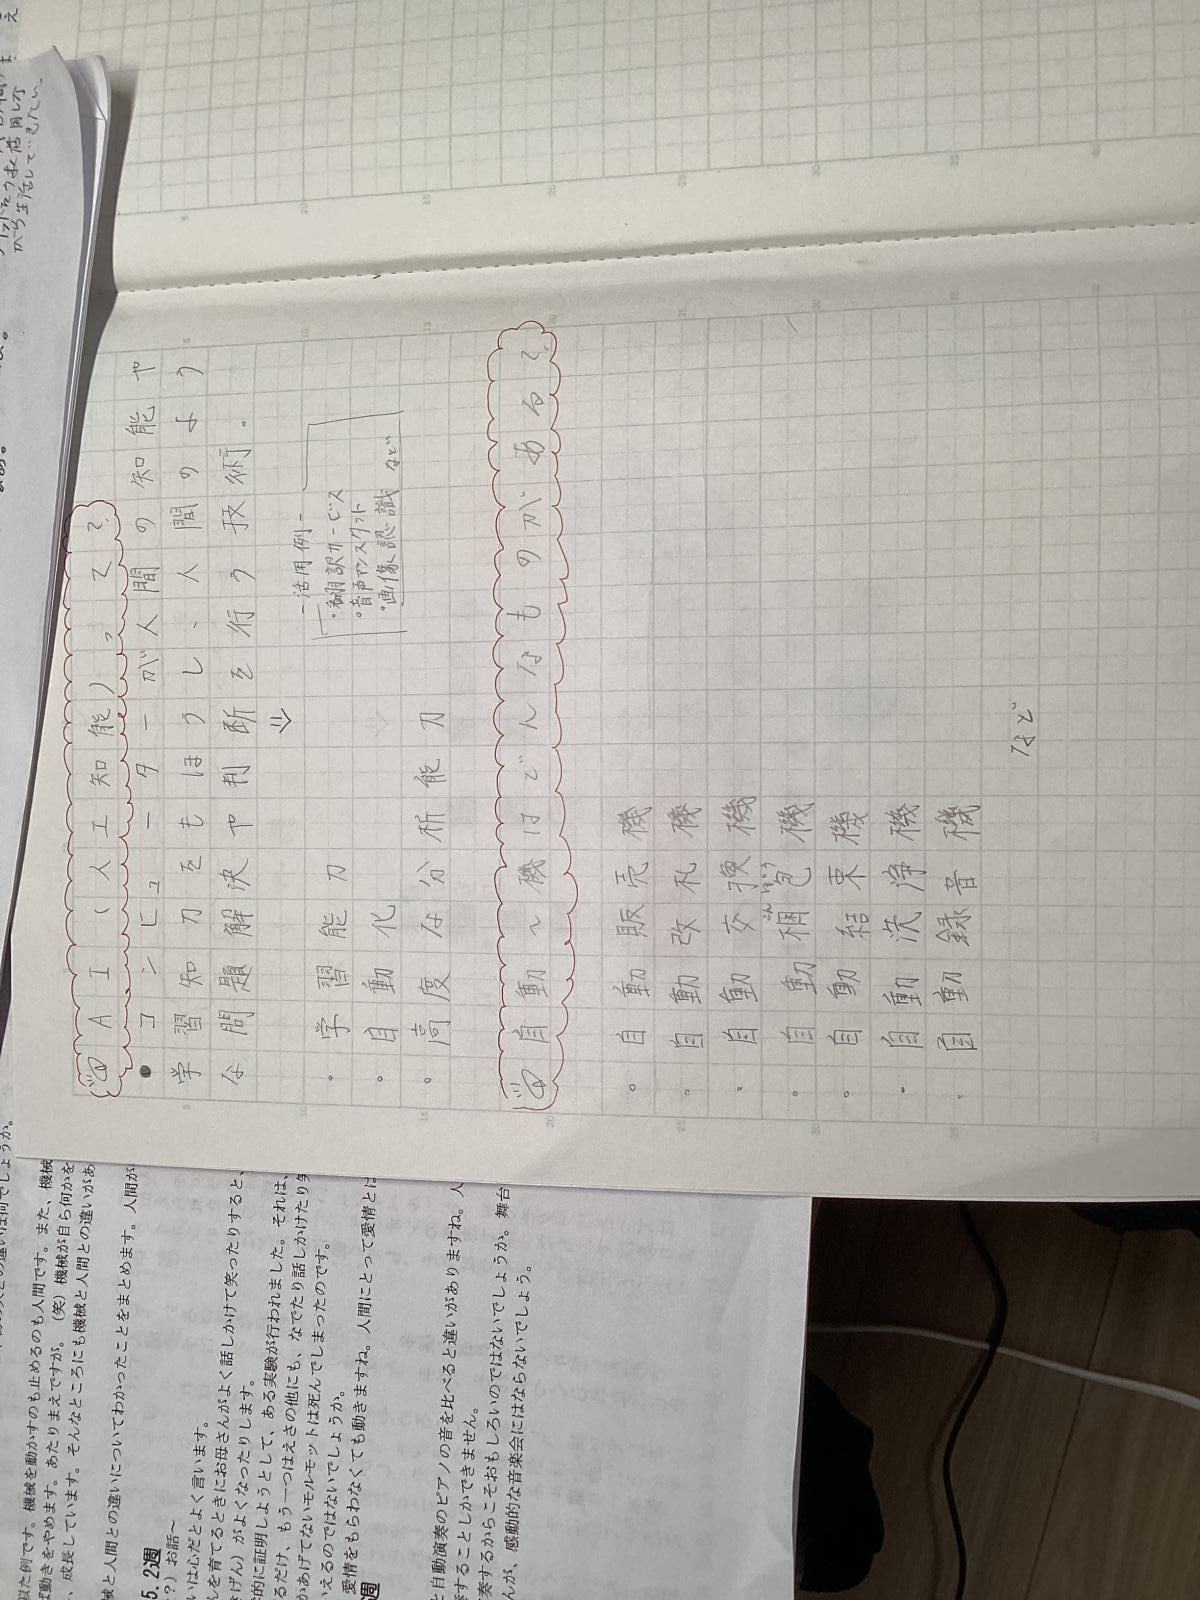 AI(人工知能)って?
●コンピューターが人間の知能や
学習知力をもほうし、人間のよう
な問題解決や判断を行う技術。
⇓
-活用例-
・翻訳サービス
・音声アシスタント
・画像認識 など
・学習能力
・自動化
・高度な分析能力
自動〜機はどんなものがある?
・自動販売機
・自動改札機
・自動交換機
・自動梱包機
こんぽう
・自動結束機
・自動洗浄機
・自動録音機
など
から生活していきたい。
似た例です。機械を動かすのも止めるのも人間です。また、機械
ば動きをやめます。あたりまえですが。(笑)機械が自ら何かを
、成長しています。そんなところにも機械と人間との違いがあ
械と人間との違いについてわかったことをまとめます。人間が
5.2週
?)お話〜
いは心だとよく言います。
んを育てるときにお母さんがよく話しかけて笑ったりすると、
きげん)がよくなったりします。
学的に証明しようとして、ある実験が行われました。それは、
るだけ、もう一つはえさの他にも、なでたり話しかけたり笑
かあげてないモルモットは死んでしまったのです。
いえるのではないでしょうか。
愛情をもらわなくても動きますね。人間にとって愛情とは
週
と自動演奏のピアノの音を比べると違いがありますね。人
奏することしかできません。
奏するからこそおもしろいのではないでしょうか。舞台
んが、感動的な音楽会にはならないでしょう。